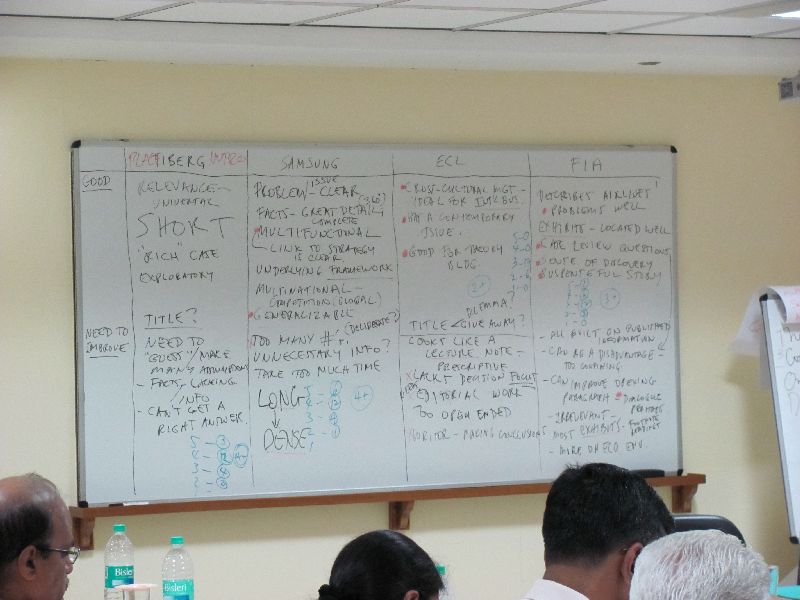 GOOD
NEED TO
IMPROVE
RELEVANCE -
UNIVERSAL
SHORT
"RICH" CASE
EXPLORATORY
TITLE?
NEED TO
"GUESS" / MAKE
MANY ASSUMPTIONS
- FACTS - LACKING
INFO
- CAN'T GET A
RIGHT ANSWER.
SAMSUNG
ISSUE
PROBLEM - CLEAR
FACTS - GREAT DETAIL, (360)
COMPLETE
MULTIFUNCTIONAL
LINK TO STRATEGY
IS CLEAR.
UNDERLYING FRAMEWORK
MULTINATIONAL -
COMPETITION, GLOBAL)
GENERALIZABLE
TOO MANY #'s. (DELIBERATE?)
UNNECESSARY INFO?
TAKE TOO MUCH TIME
LONG
DENSE
4+
ECL
CROSS-CULTURAL MGT -
IDEAL FOR INT'L BUS.
HAS A CONTEMPORARY
ISSUE.
GOOD FOR THEORY
BLDG
DILEMMA?
TITLE < GIVE AWAY?
LOOKS LIKE A
LECTURE NOTE -
PRESCRIPTIVE
LACKS DECISION FOCUS
EDITORIAL WORK
TOO OPEN ENDED
WRITER - MAKING CONCLUSIONS
FIA
DESCRIBES AIRLINES'
PROBLEMS WELL
EXHIBITS - LOCATED WELL
CASE REVIEW QUESTIONS
ROUTE OF DISCOVERY
SUSPENSEFUL STORY
3+
- ALL BUILT ON PUBLISHED
INFORMATION
- CAN BE A DISADVANTAGE -
TOO CONFINING
- CAN IMPROVE OPENING
PARAGRAPH - DIALOGUE
- IRRELEVANT -
MOST EXHIBITS -
- MORE ON ECO ENV.
Bisleri
Bisleri